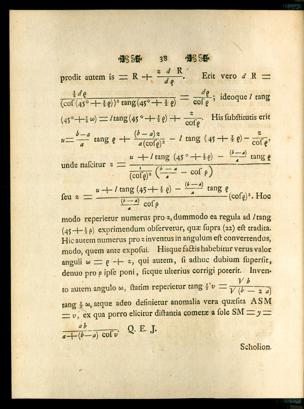 38
prodit autem is = R + z d R / dρ. Erit vero d R =
½ dρ / (cos (45° + ½ ρ))² tang (45° + ½ ρ) = dρ / cos ρ; ideoque l tang
(45° + ½ ω) = l tang (45° + ½ ρ) + z / cos ρ. His substitutis erit
u = b − a / a tang ρ + (b − a) z / a (cos ρ)² − l tang (45 + ½ ρ) − z / cos ρ,
unde nascitur z = u + l tang (45° + ½ ρ) − (b − a / a) tang ρ / 1 / (cos ρ)² (b − a / a − cos ρ)
seu z = u + l tang (45 + ½ ρ) − (b − a / a) tang ρ / (b − a / a) − cos ρ (cos ρ)². Hoc
modo reperietur numerus pro z, dummodo ea regula ad l tang
(45 + ½ ρ) exprimendum observetur, quæ supra (22) est tradita.
Hic autem numerus pro z inventus in angulum est convertendus,
modo, quem ante exposui. Hisque factis habebitur verus valor
anguli ω = ρ + z, qui autem, si adhuc dubium supersit,
denuo pro ρ ipse poni, sicque ulterius corrigi poterit. Inven-
to autem angulo ω, statim reperietur tang ½ v = √ b / √ (b − 2 a)
tang ½ ω, atque adeo definietur anomalia vera quæsita ASM
= v, ex qua porro elicitur distantia cometæ a sole SM = y =
a b / a + (b − a) cos v. Q. E. J.
Scholion.